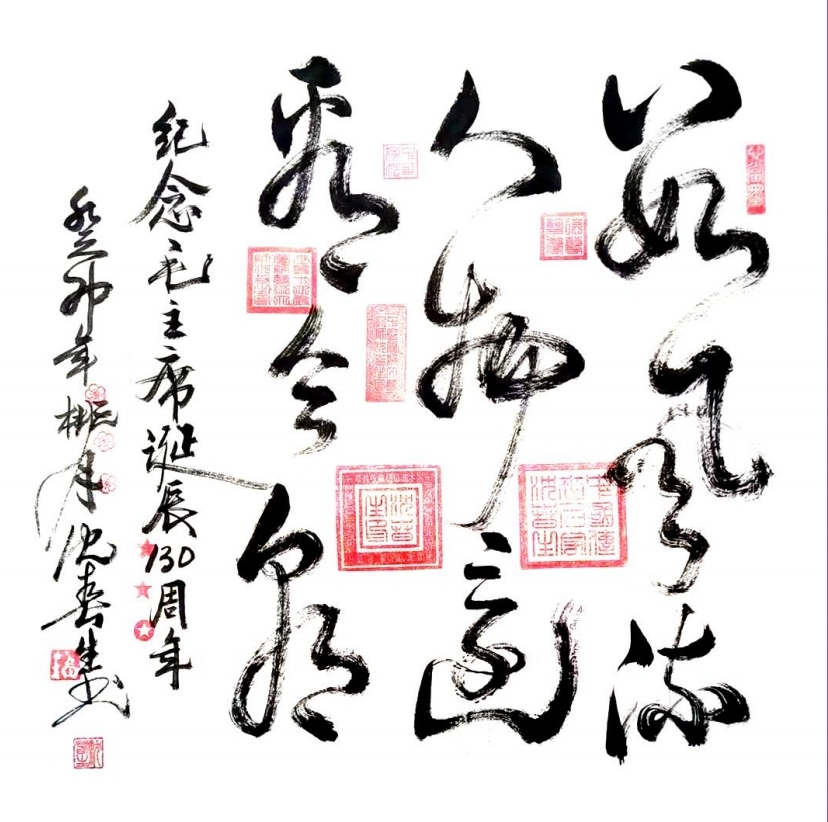 数风流
人物还
看今朝
纪念毛主席诞辰130周年
癸卯年桃月沈春生书
沈春生印